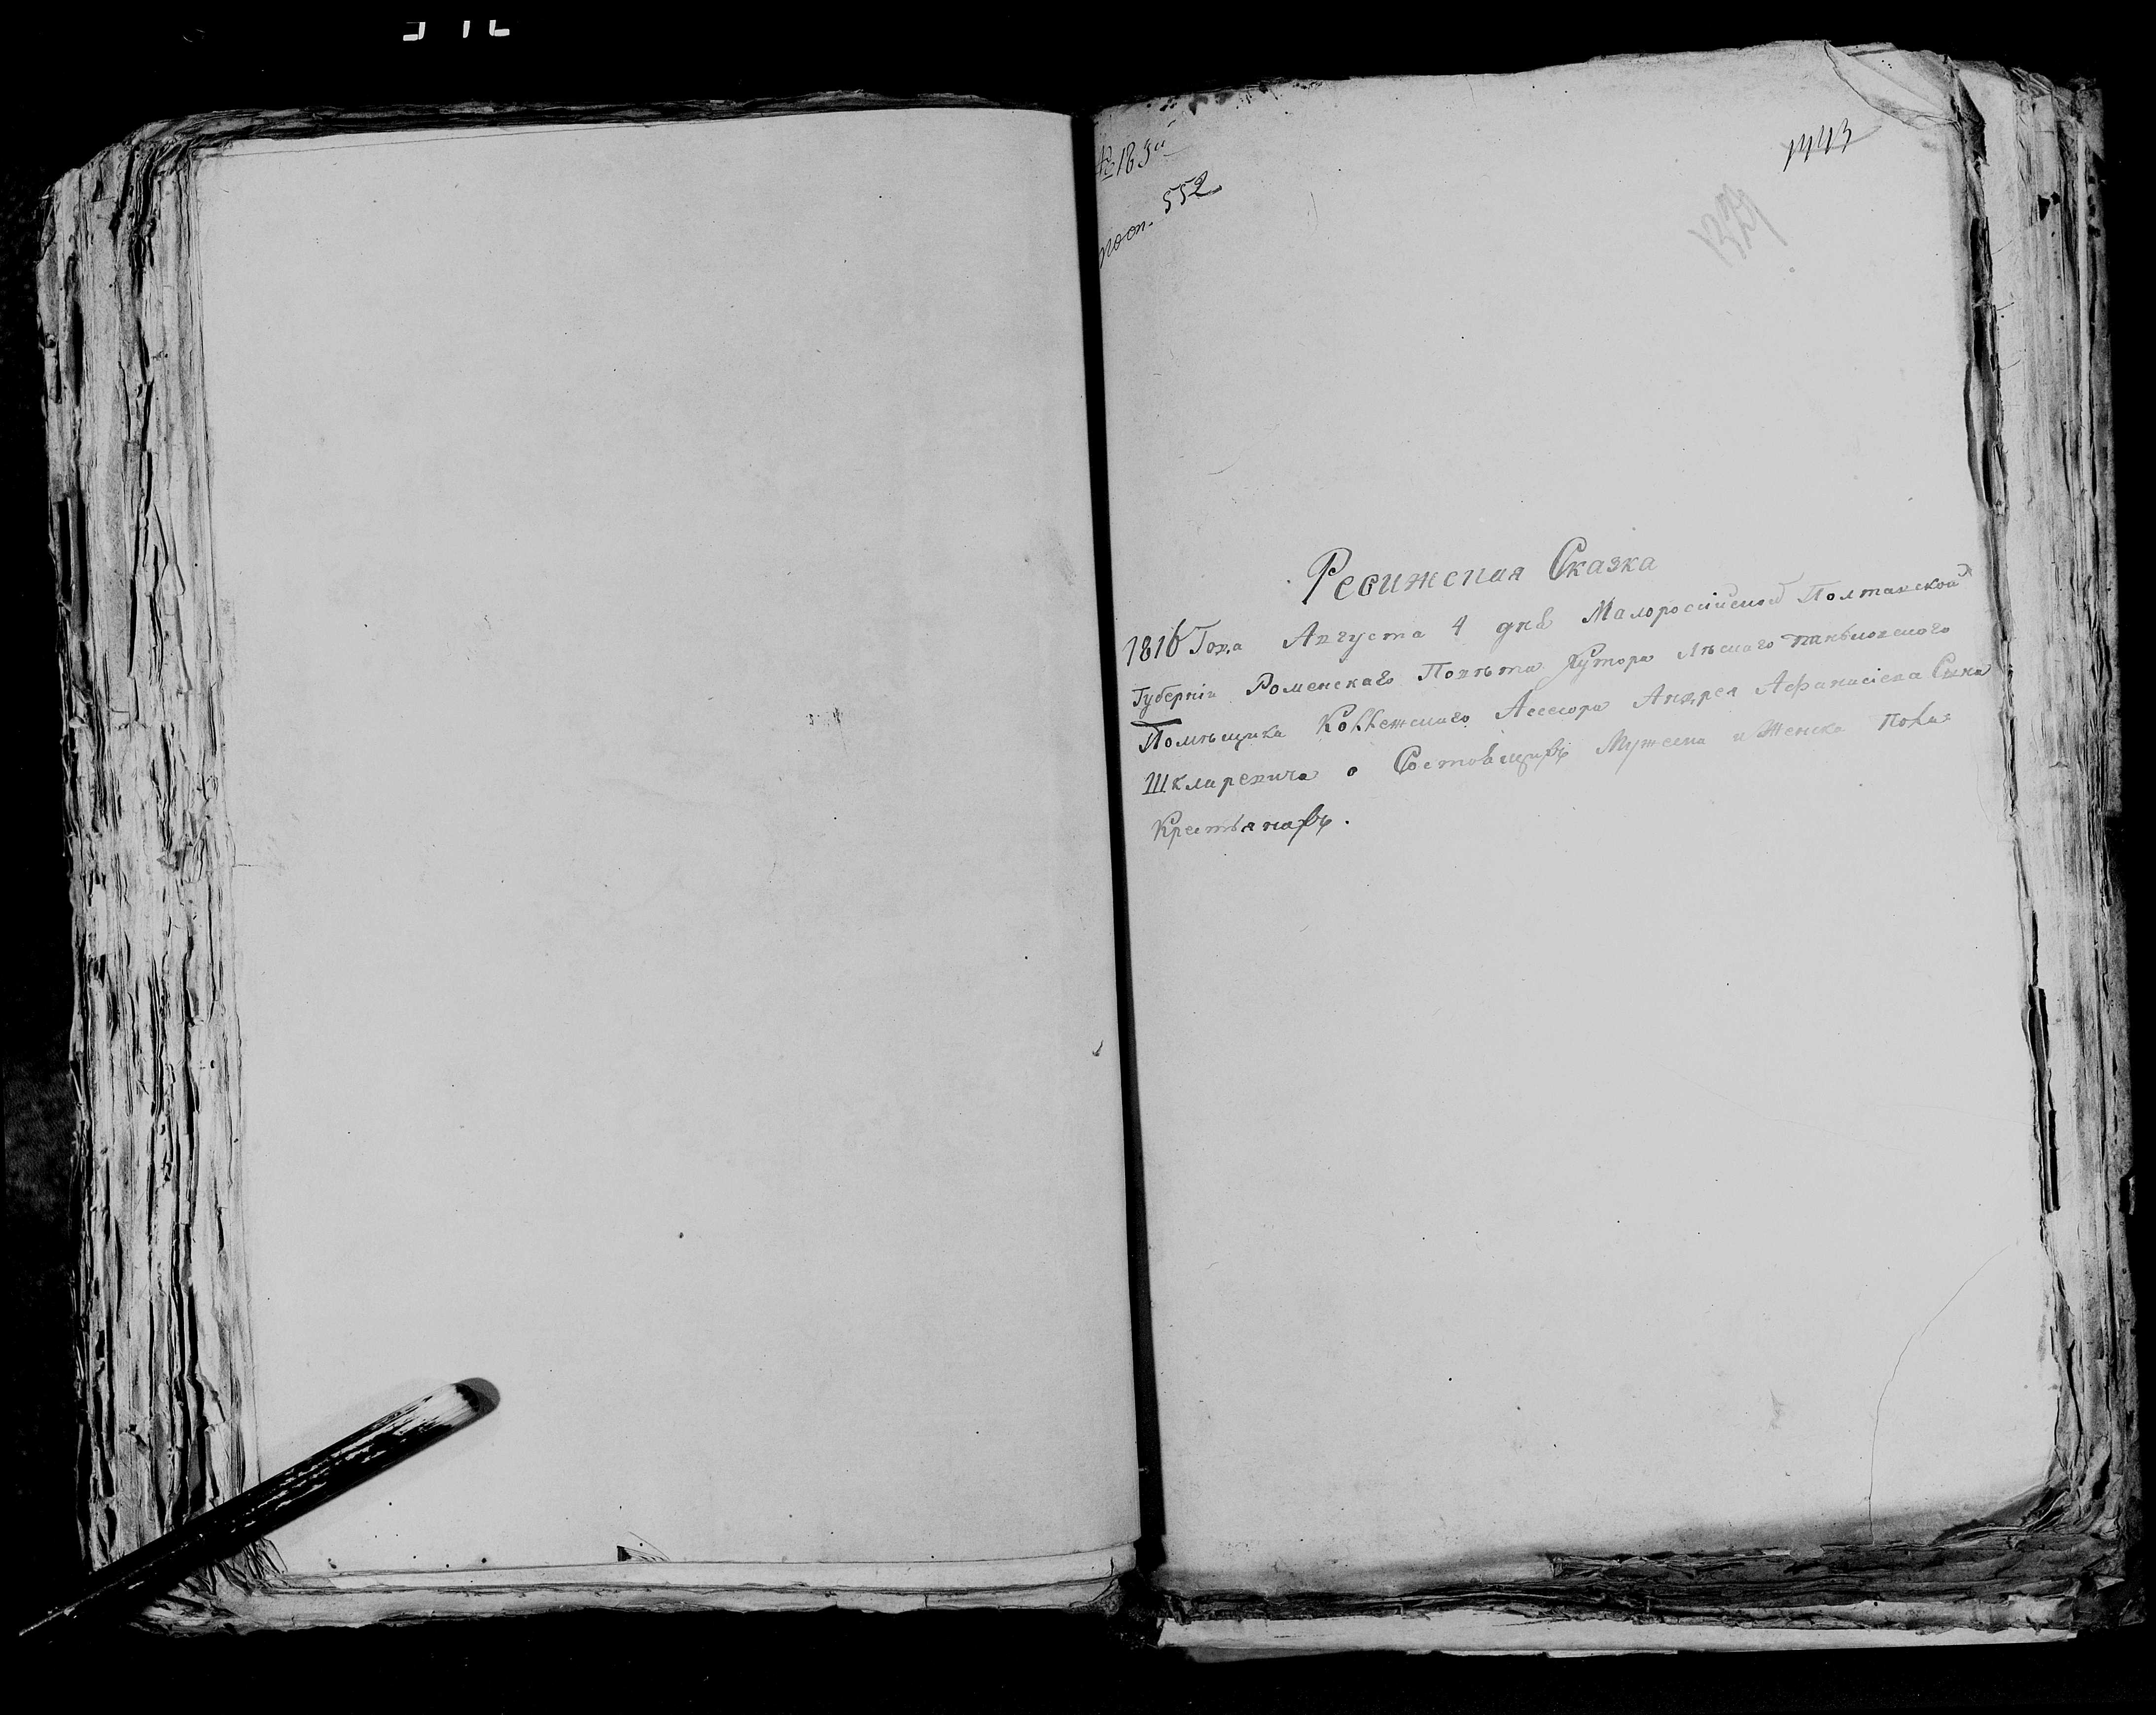 № 185й
пост. 552
1443
1329
Ревижская Сказка
1816 Года Августа 4 дня Малоросийской Полтавской
Губерніи Роменскаго Повѣта Хутора
Помѣщика Коллежскаго Асесора Андрея Афанасіева Сина
Шкляревича о Состоящихъ Мужеска и Женска Пола
Крестьянахъ.